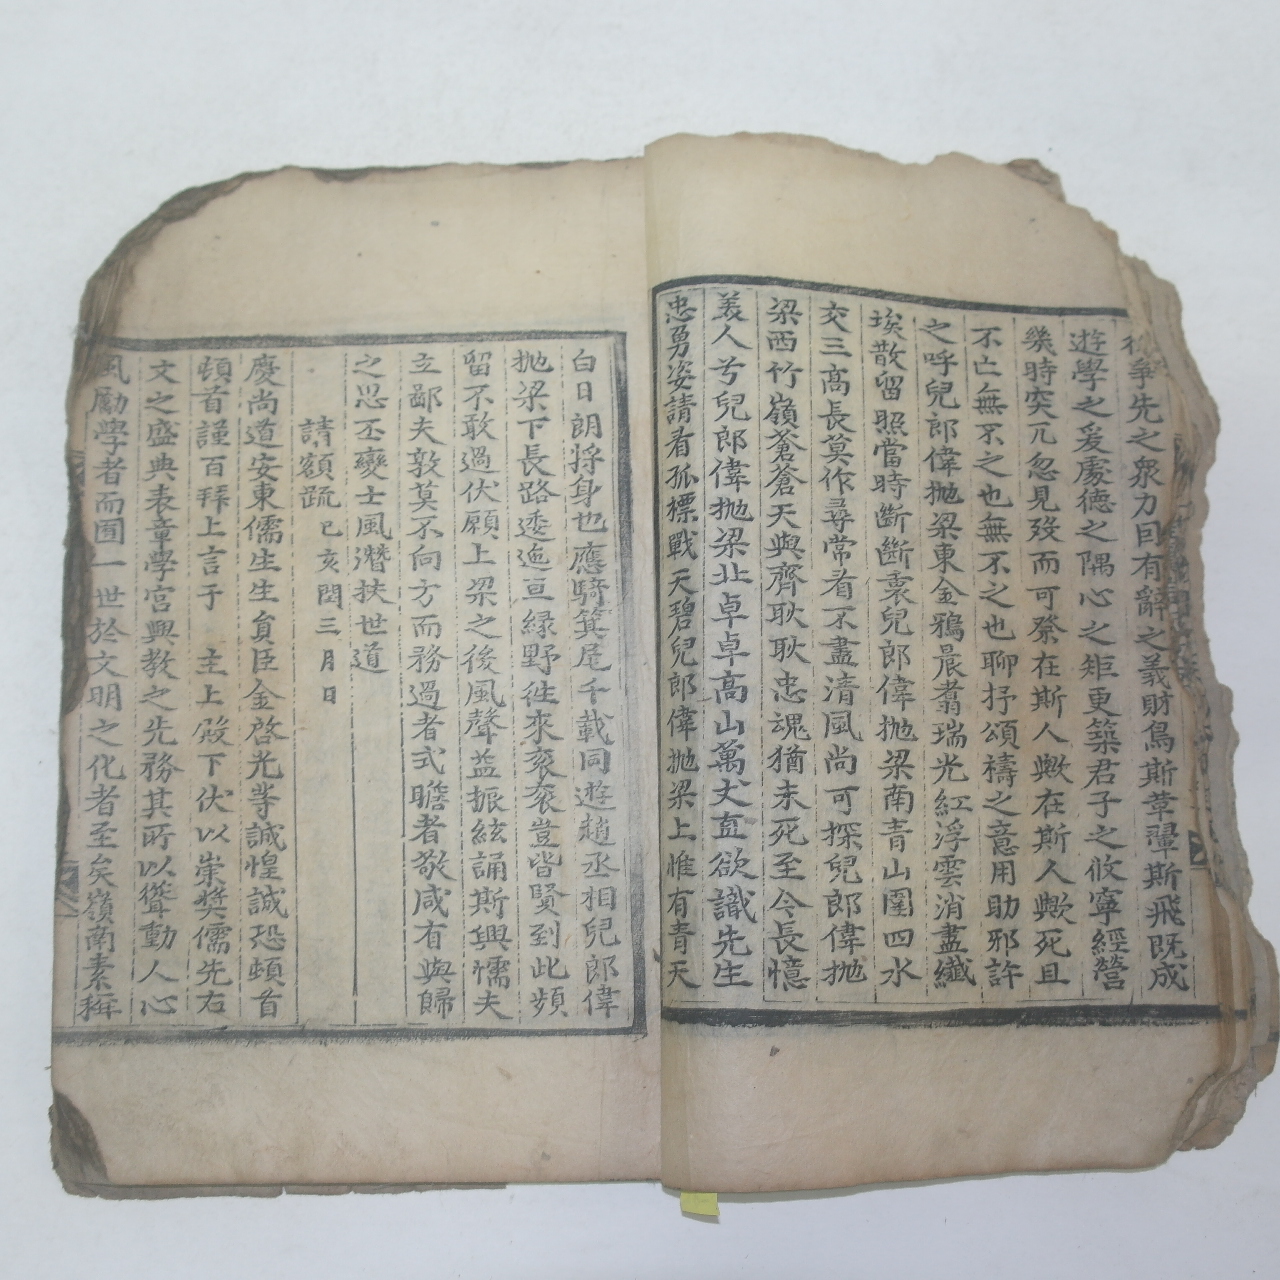 爭先之衆力囙有辭之義財鳥斯革翬斯飛既成
遊學之爰處德之隅心之矩更築君子之攸寧經營
幾時突兀忽見歿而可祭在斯人歟在斯人歟死且
不亡無不之也無不之也聊抒頌禱之意用助邪許
之呼兒郎偉抛梁東金鴉晨翥瑞光紅浮雲消盡纖
埃散留照當時斷斷衷兒郎偉抛梁南青山圍四水
交三高長莫作尋常看不盡清風尚可探兒郎偉抛
梁西竹嶺蒼蒼天與齊耿耿忠魂猶未死至今長憶
美人兮兒郎偉抛梁北卓卓高山萬丈直欲識先生
忠勇姿請看孤標戰天碧兒郎偉抛梁上惟有青天
白日朗將身也應騎箕尾千載同遊趙丞相兒郎偉
抛梁下長路逶迤亘緑野徃來衮衮豈皆賢到此頻
留不敢過伏願上梁之後風聲益振絃誦斯興懦夫
立鄙夫敦莫不向方而務過者式瞻者敬咸有與歸
之思丕變士風潛扶世道
請額疏 己亥閏三月日
慶尚道安東儒生生員臣金啓光等誠惶誠恐頓首
頓首謹百拜上言于 主上殿下伏以崇奬儒先右
文之盛典表章學宮興教之先務其所以聳動人心
風勵學者而囿一世於文明之化者至矣嶺南素稱